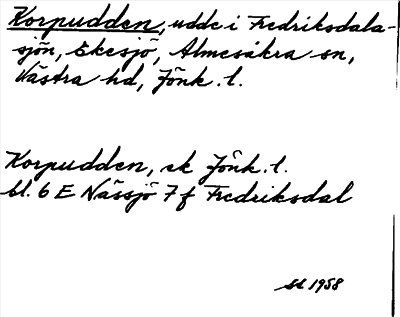 Korpudden, udde i Fredriksdala-
sjön, Ekesjö, Almesåkra sn,
Västra hd, Jönk. l.
Korpudden, ek Jönk. l.
bl. 6 E Nässjö 7 f Fredriksdal
1958